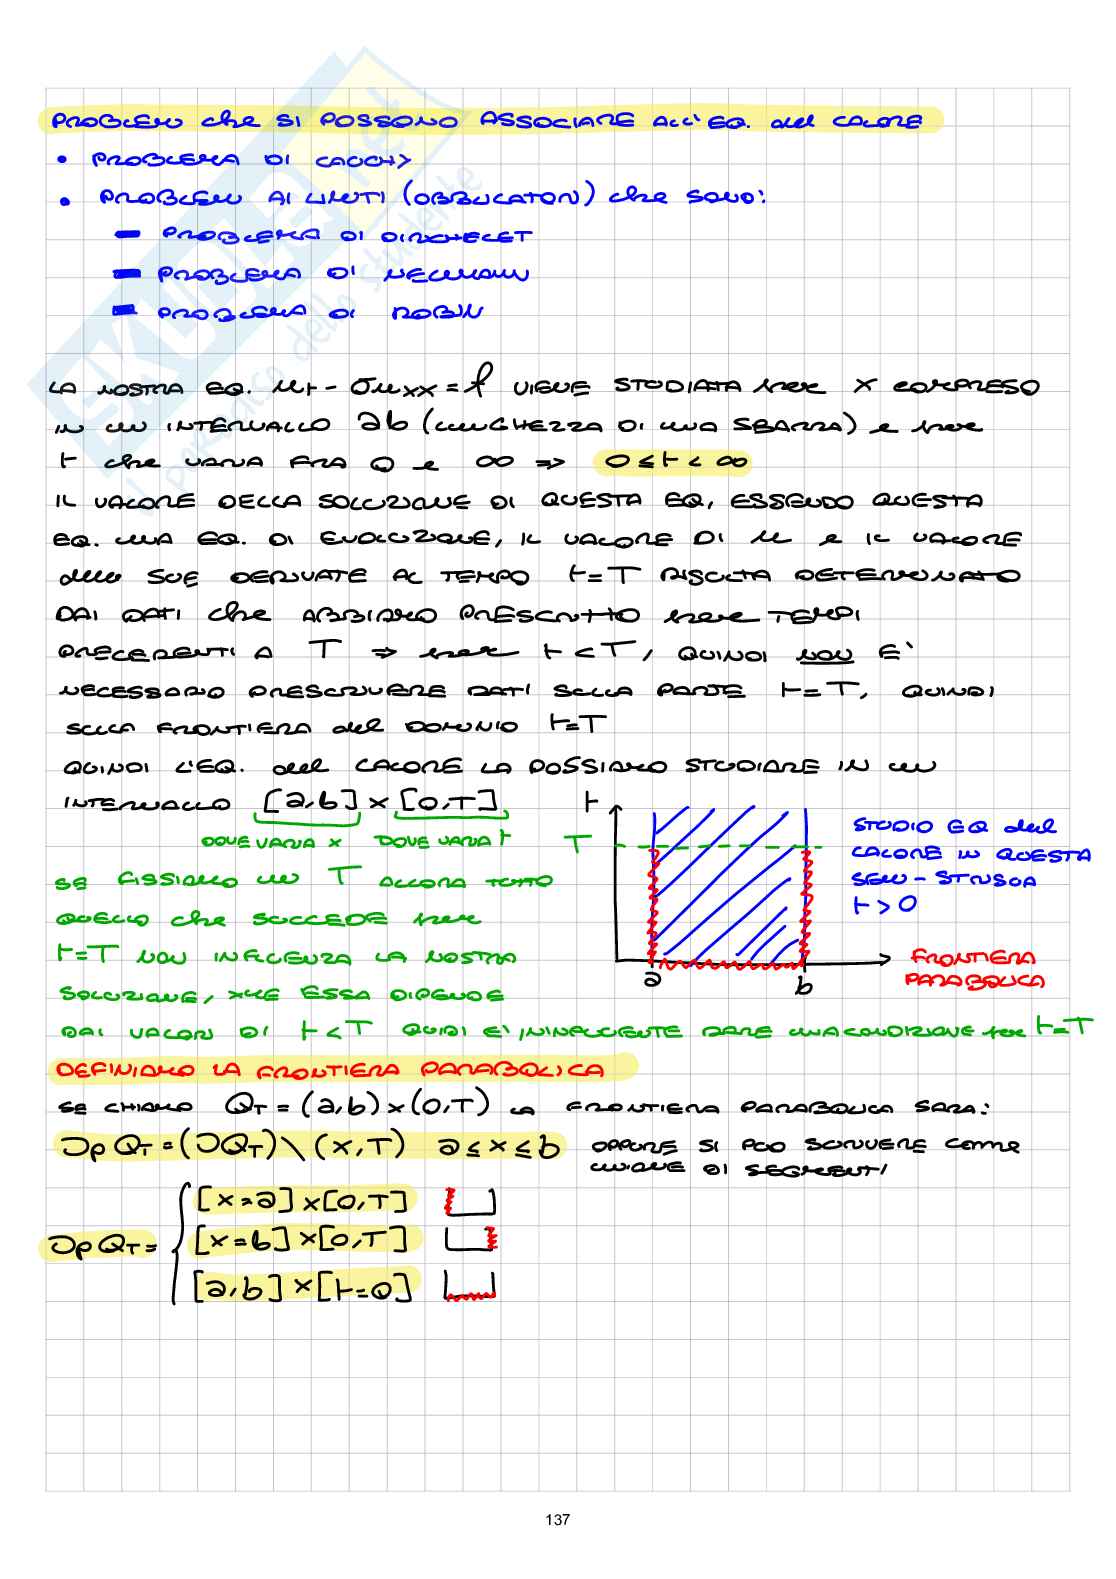 PROBLEMI che SI POSSONO ASSOCIARE ALL'EQ. del CALORE
• PROBLEMA DI CAUCHY
• PROBLEMI AI LIMITI (OBBLIGATORI) che SONO:
– PROBLEMA DI DIRICHELET
– PROBLEMA DI NEUMANN
– PROBLEMA DI ROBIN
LA NOSTRA EQ. ut - σuxx = f VIENE STUDIATA per x COMPRESO
IN UN INTERVALLO ab (LUNGHEZZA DI UNA SBARRA) e per
t che VARIA FRA 0 e ∞ ⇒ 0 ≤ t < ∞
IL VALORE DELLA SOLUZIONE DI QUESTA EQ, ESSENDO QUESTA
EQ. UNA EQ. DI EVOLUZIONE, IL VALORE DI u e IL VALORE
delle SUE DERIVATE AL TEMPO t=T RISULTA DETERMINATO
DAI DATI che ABBIAMO PRESCRITTO per TEMPI
PRECEDENTI A T ⇒ per t < T, QUINDI NON E'
NECESSARIO PRESCRIVERE DATI SULLA PARTE t=T, QUINDI
SULLA FRONTIERA del DOMINIO t=T
QUINDI L'EQ. del CALORE LA POSSIAMO STUDIARE IN UN
INTERVALLO [a,b] × [0,T]
DOVE VARIA x DOVE VARIA t
SE FISSIAMO UN T ALLORA TUTTO
QUELLO che SUCCEDE per
t=T NON INFLUENZA LA NOSTRA
SOLUZIONE, xke ESSA DIPENDE
DAI VALORI DI t < T QUIDI E' ININFLUENTE DARE UNA CONDIZIONE per t=T
t
T
a
b
STUDIO EQ del
CALORE IN QUESTA
SEMI-STRISCIA
t > 0
FRONTIERA
PARABOLICA
DEFINIAMO LA FRONTIERA PARABOLICA
SE CHIAMO QT = (a,b) × (0,T) LA FRONTIERA PARABOLICA SARA:
∂p QT = (∂QT) \ (x,T) a ≤ x ≤ b OPPURE SI PUO SCRIVERE come
UNIONE DI SEGMENTI
∂p QT = { [x=a] × [0,T]
[x=b] × [0,T]
[a,b] × [t=0]
137
SKUOLA.net
il paradiso dello studente